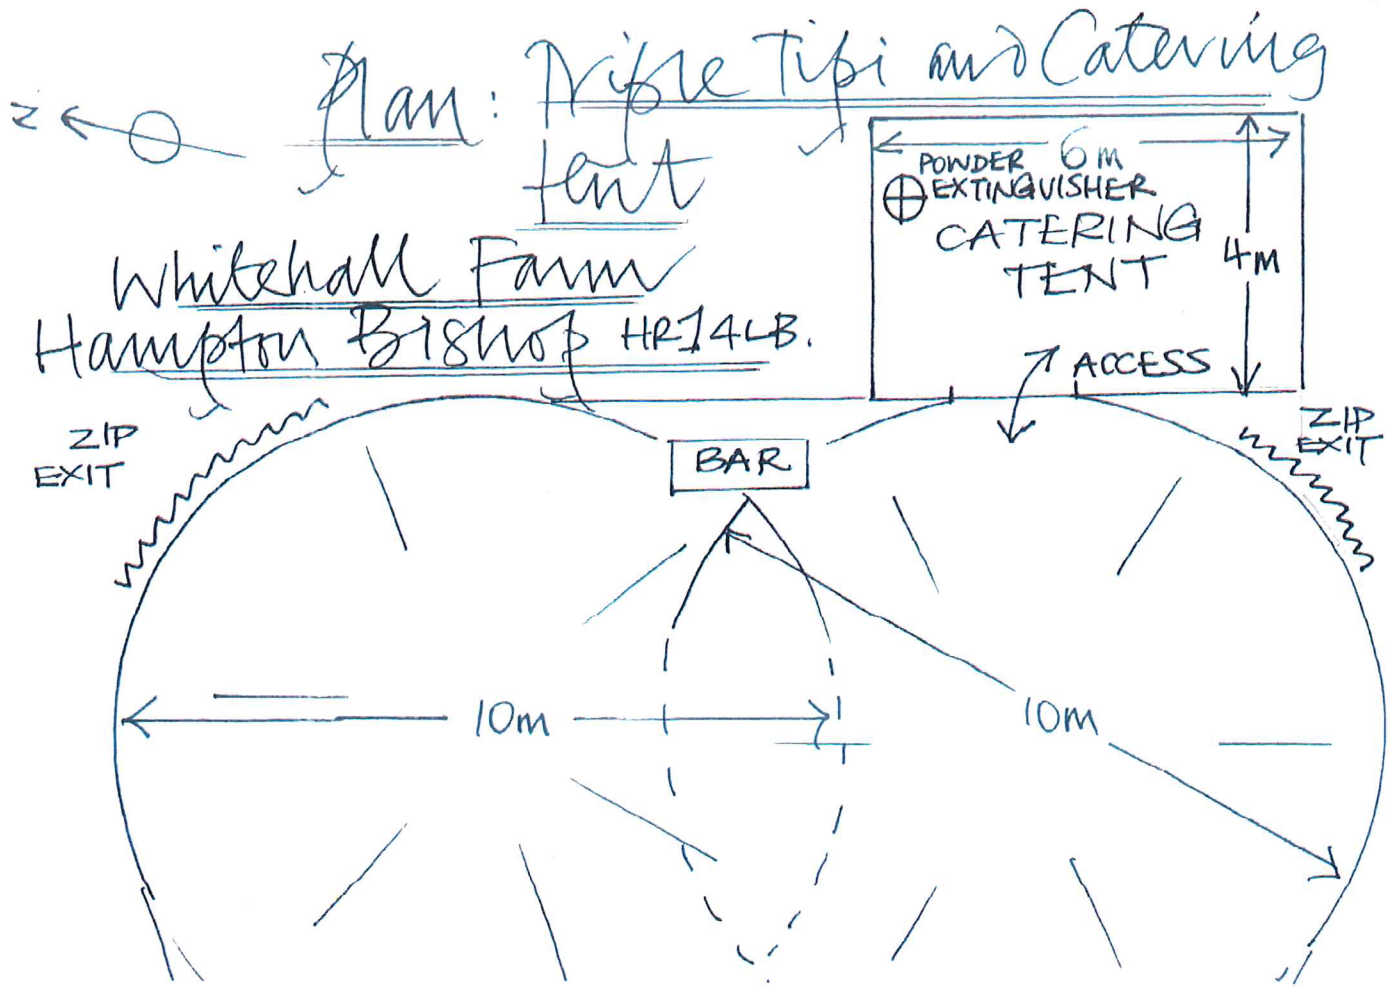 Plan: Triple Tipi and Catering
tent
Whitehall Farm
Hampton Bishop HR1 4LB.
N
6m
POWDER
EXTINGUISHER
CATERING
TENT
4m
ACCESS
ZIP
EXIT
BAR
ZIP
EXIT
10m
10m